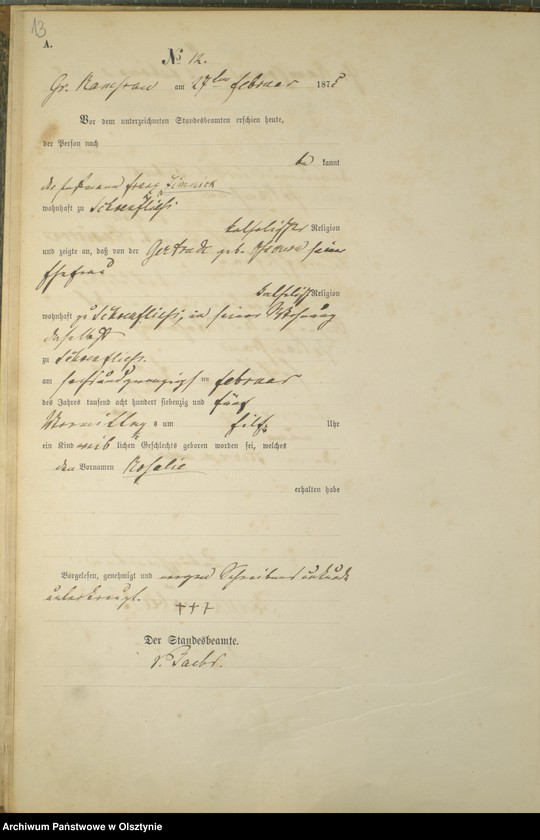 13
A.
No 12.
Gr. Ramsau am 27ten Februar 1875
Vor dem unterzeichneten Standesbeamten erschien heute,
der Person nach
be kannt
der Franz
wohnhaft zu Schoenfliess
katholischer Religion
und zeigte an, daß von der Gertrude geb. seiner
Ehefrau
katholischer Religion
wohnhaft zu Schoenfliess, in seiner Wohnung
daselbst
zu Schoenfliess.
am sechsundzwanzigsten Februar
des Jahres tausend acht hundert siebenzig und fünf
Vormittags um Eilf Uhr
ein Kind weiblichen Geschlechts geboren worden sei, welches
den Vornamen Rosalie
erhalten habe
Vorgelesen, genehmigt und wegen Schreibensunkunde
unterkreuzt.
+++
Der Standesbeamte.
Archiwum Państwowe w Olsztynie